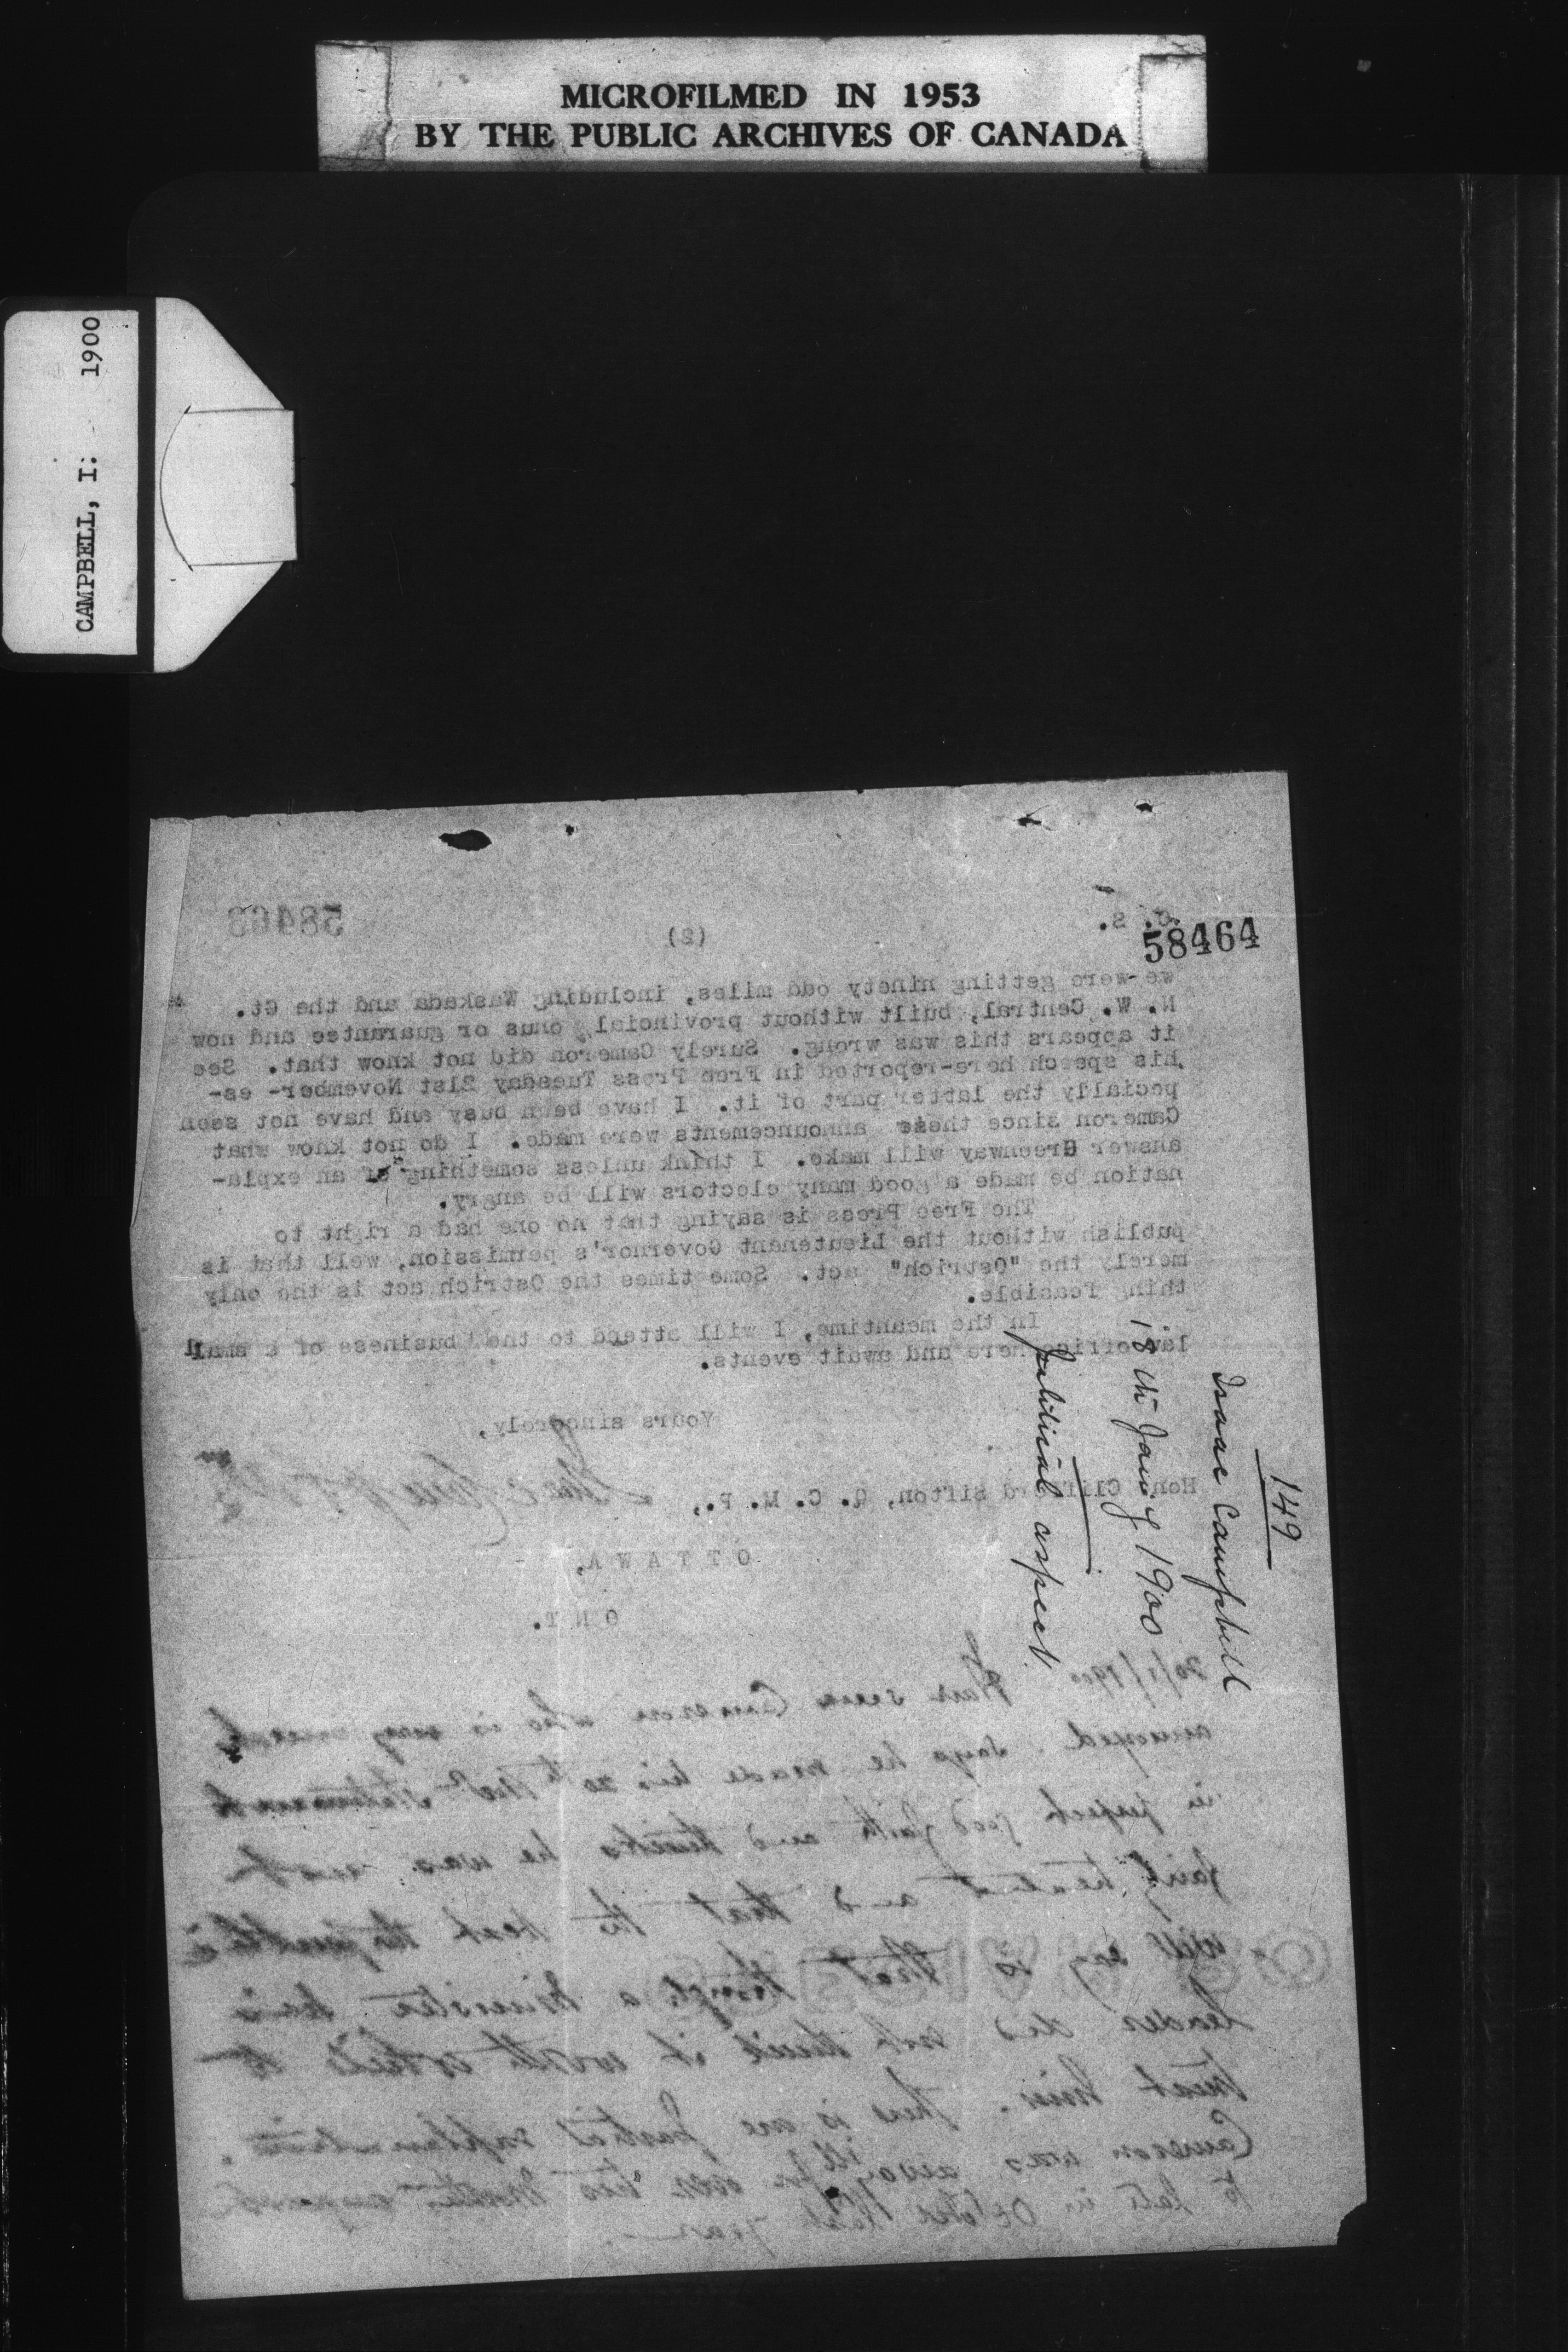 MICROFILMED IN 1953
BY THE PUBLIC ARCHIVES OF CANADA
CAMPBELL, I: 1900
58464
58463
C. S.
(2)
we-were getting ninety odd miles, including Waskada and the Gt.
N. W. Central, built without provincial onus or guarantee and now
it appears this was wrong. Surely Cameron did not know that. See
his speech here-reported in Free Press Tuesday 21st November- es-
pecially the latter part of it. I have been busy and have not seen
Cameron since these announcements were made. I do not know what
answer Greenway will make. I think unless something of an expla-
nation be made a good many electors will be angry.
The Free Press is saying that no one had a right to
publish without the Lieutenant Governor's permission, well that is
merely the "Ostrich" act. Some times the Ostrich act is the only
thing feasible.
In the meantime, I will attend to the business of a small
law office here and await events.
Yours sincerely,
Hon. Clifford Sifton, Q. C. M. P.,
OTTAWA,
ONT.
149
Isaac Campbell
18th Jany 1900
Political aspect
20/1/1900 Have seen Cameron who is very much
annoyed. Says he made his 20th Nov statement
in perfect good faith and thinks he was not
fairly treated and that the
will say is that though a Minister his
leader did not think it worth while to
trust him. There is one partial explanation.
Cameron was away ill for over two months
to late in October last year